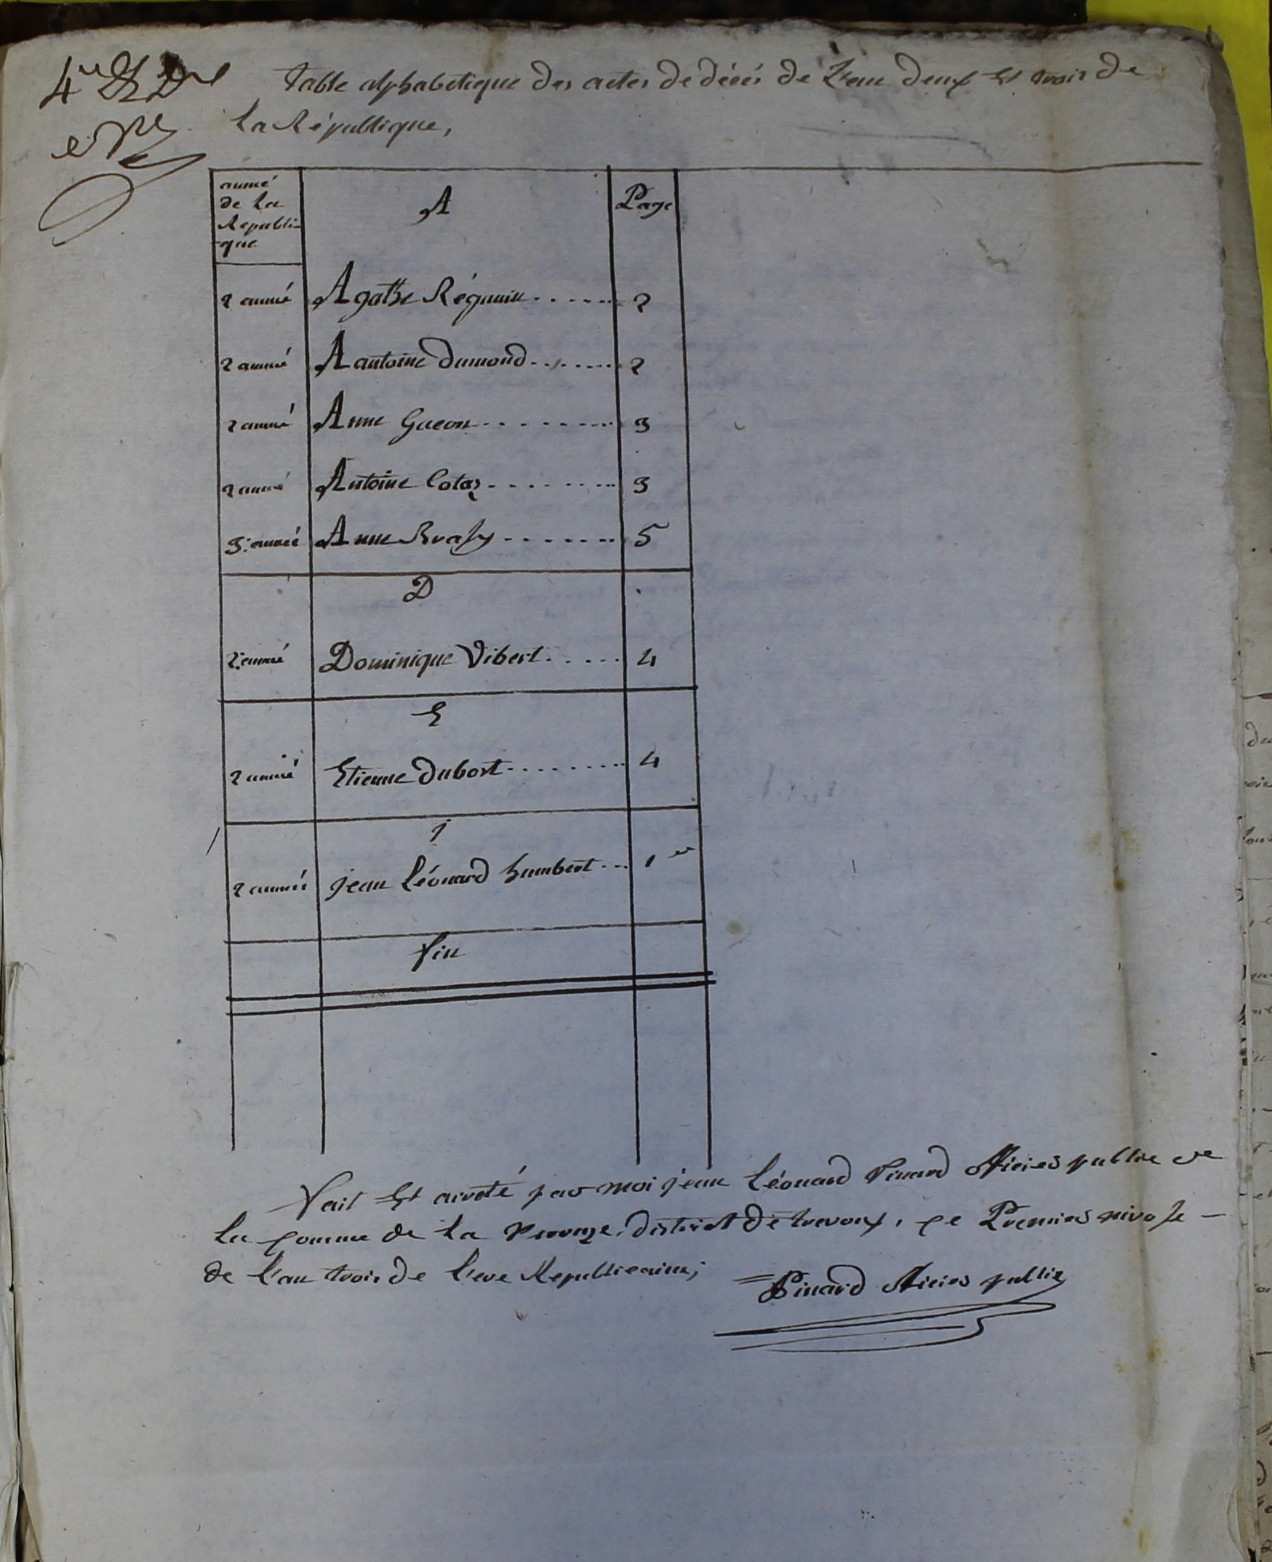 4.e et D.er
Table alphabetique des actes de décés de L'an deux Et trois de
La République,
année
de La
Republi-
que
A
Page
2 année Agathe Réguain 2
2 année Aantoine Dumond 2
2 année Anne Gueon 3
2 année Antoine Cotaz 3
3e année Anne 5
D
2e année Dominique Vibert 4
E
2 année Etienne Dubost 4
j
2 année jean Léonard humbert 1er
fin
fait Et arreté par moi jean Léonard Pinard officier public de
La comune de La district de trevoux, ce Premier nivose
de L'an trois de L'ere Republicaine;
Pinard officier public